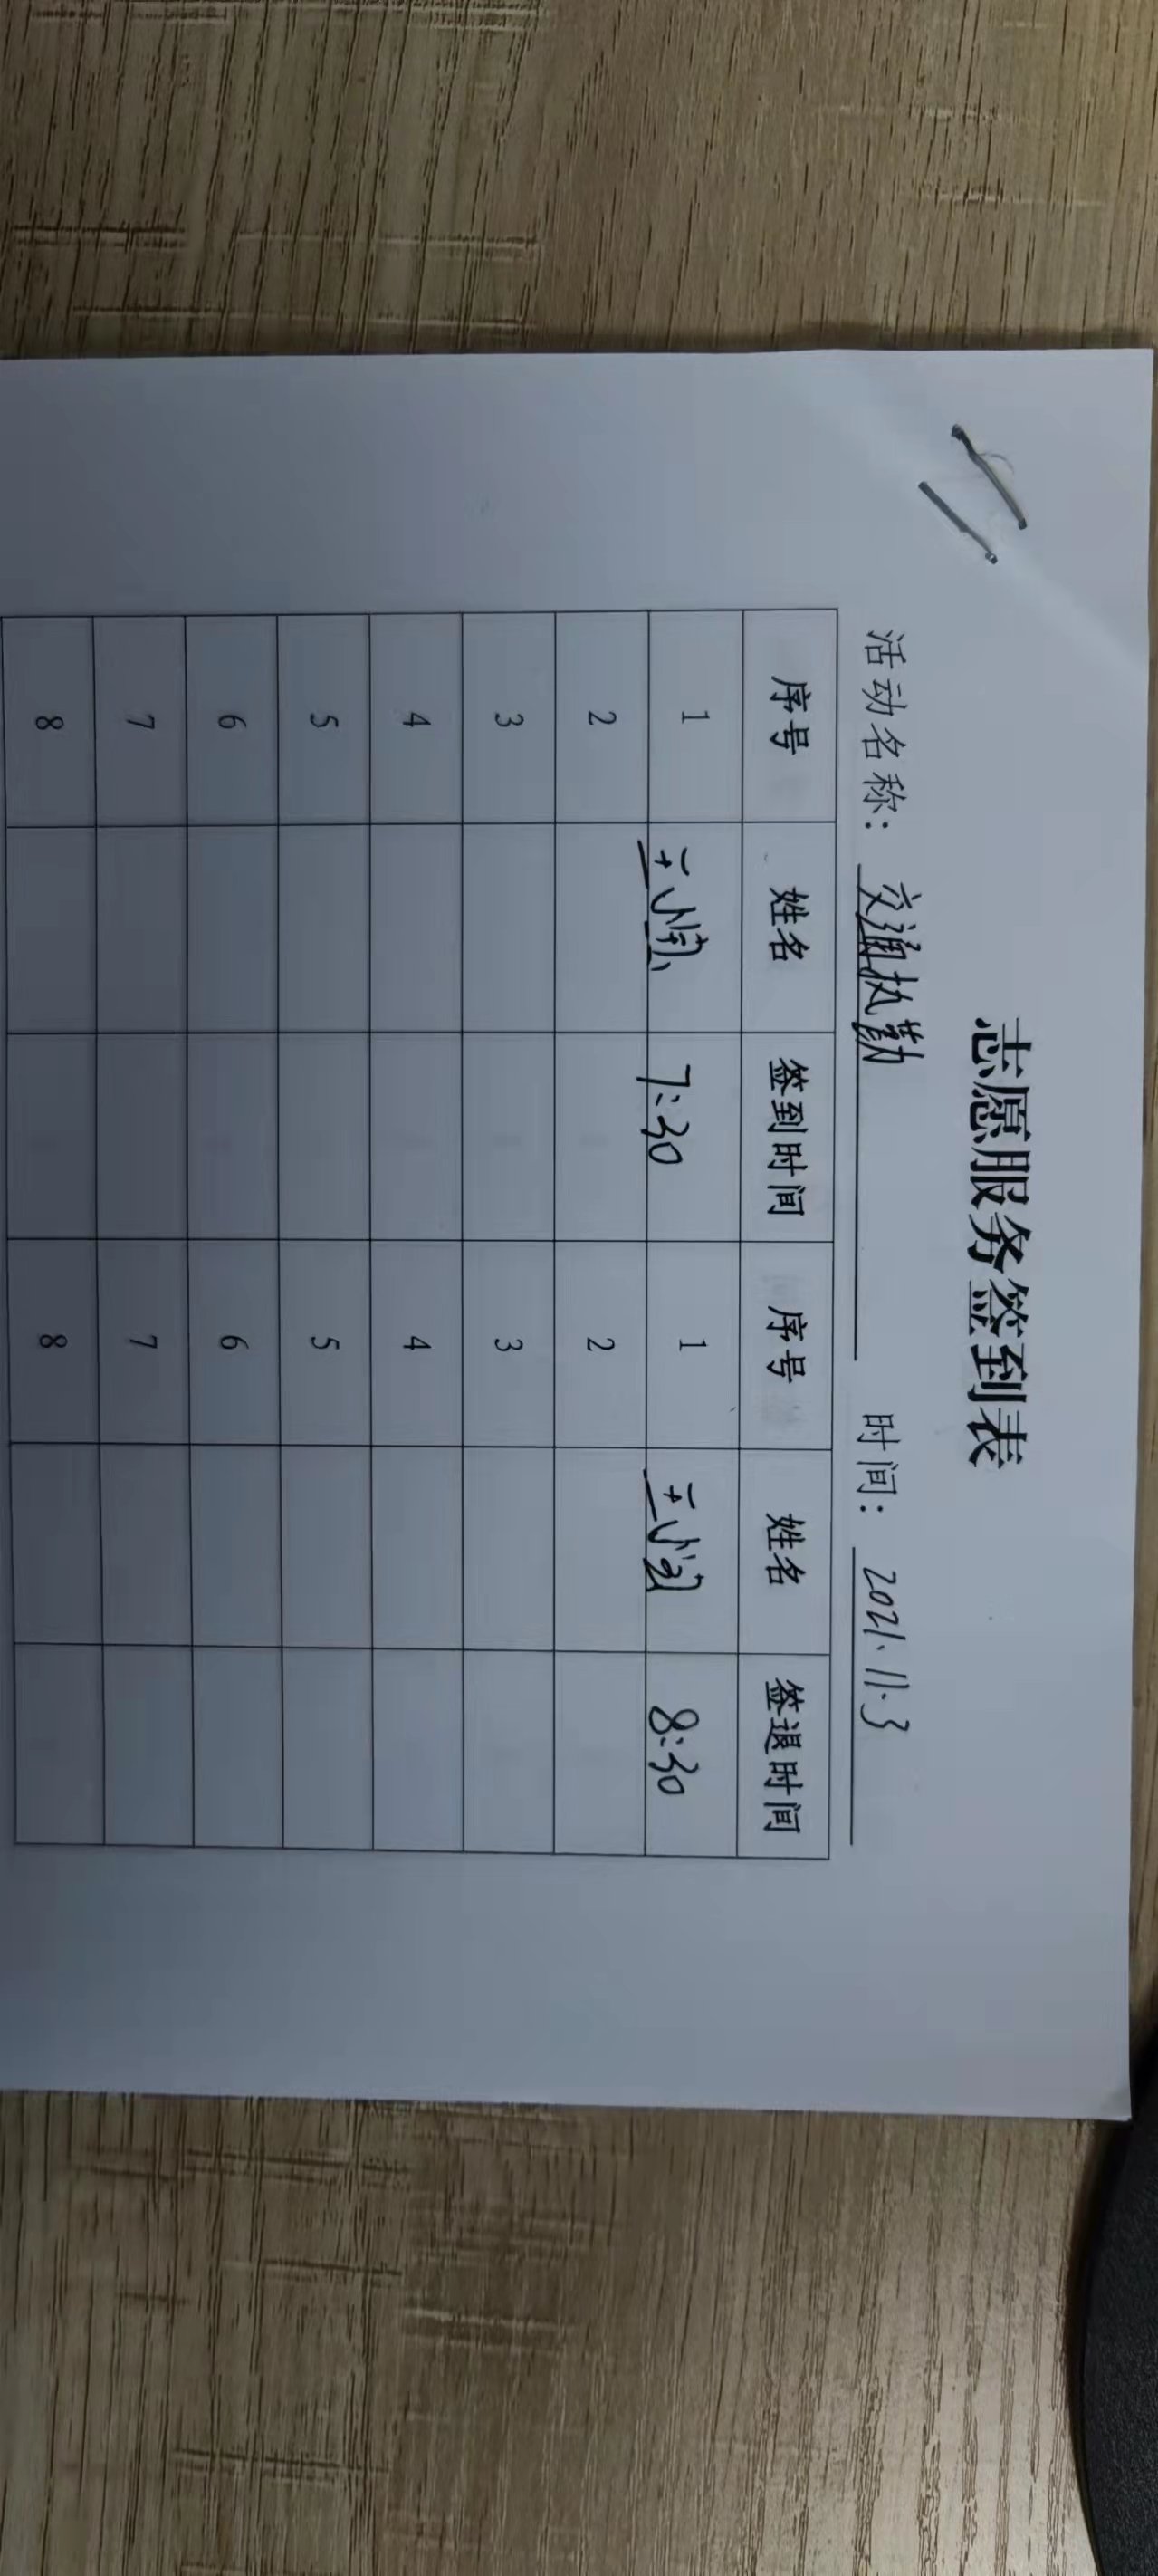 志愿服务签到表
活动名称： 交通执勤 时间： 2021.11.3
序号 姓名 签到时间 序号 姓名 签退时间
1 王小 7:30 1 王小 8:30
2 2
3 3
4 4
5 5
6 6
7 7
8 8